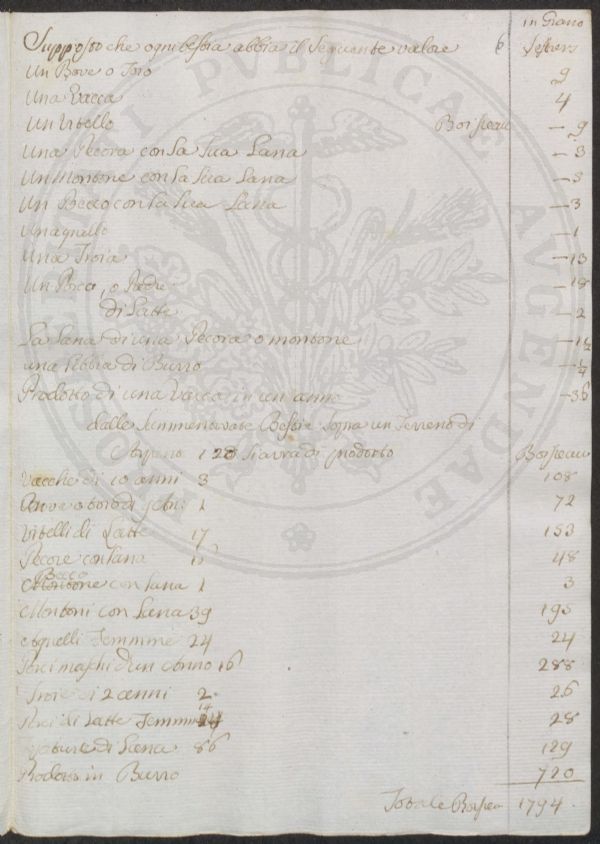 in Grano
Supposto che ogni bestia abbia il seguente valore Sestiers
Un Bove o Toro 9
Una Vacca 4
Un Vitello Boisseau — 9
Una Pecora con la sua Lana — 3
Un Montone con la sua Lana — 5
Un Becco con la sua Lana — 3
Un agnello — 1
Una Troia — 13
Un Porco, o — 18
di Latte — 2
La Lana di una Pecora o montone — 1½
una Libbra di Burro
Prodotto di una Vacca in un anno — 36
dalle Summenovate Bestie sopra un Terreno di
120 di prodotto Boisseau
Vacche di 10 anni 3 108
1 72
Vitelli di Latte 17 153
Pecore con lana 48
Becco
Montone con lana 1 3
Montoni con Lana 39 195
Agnelli Femmine 24 24
Porci maschi d'un Anno 16 288
Troie di 2 anni 2 26
14
Porci di Latte Femmine 28
di Lana 86 129
Prodotto in Burro 720
Totale Boisseau 1794
PUBLICAE AUGENDAE